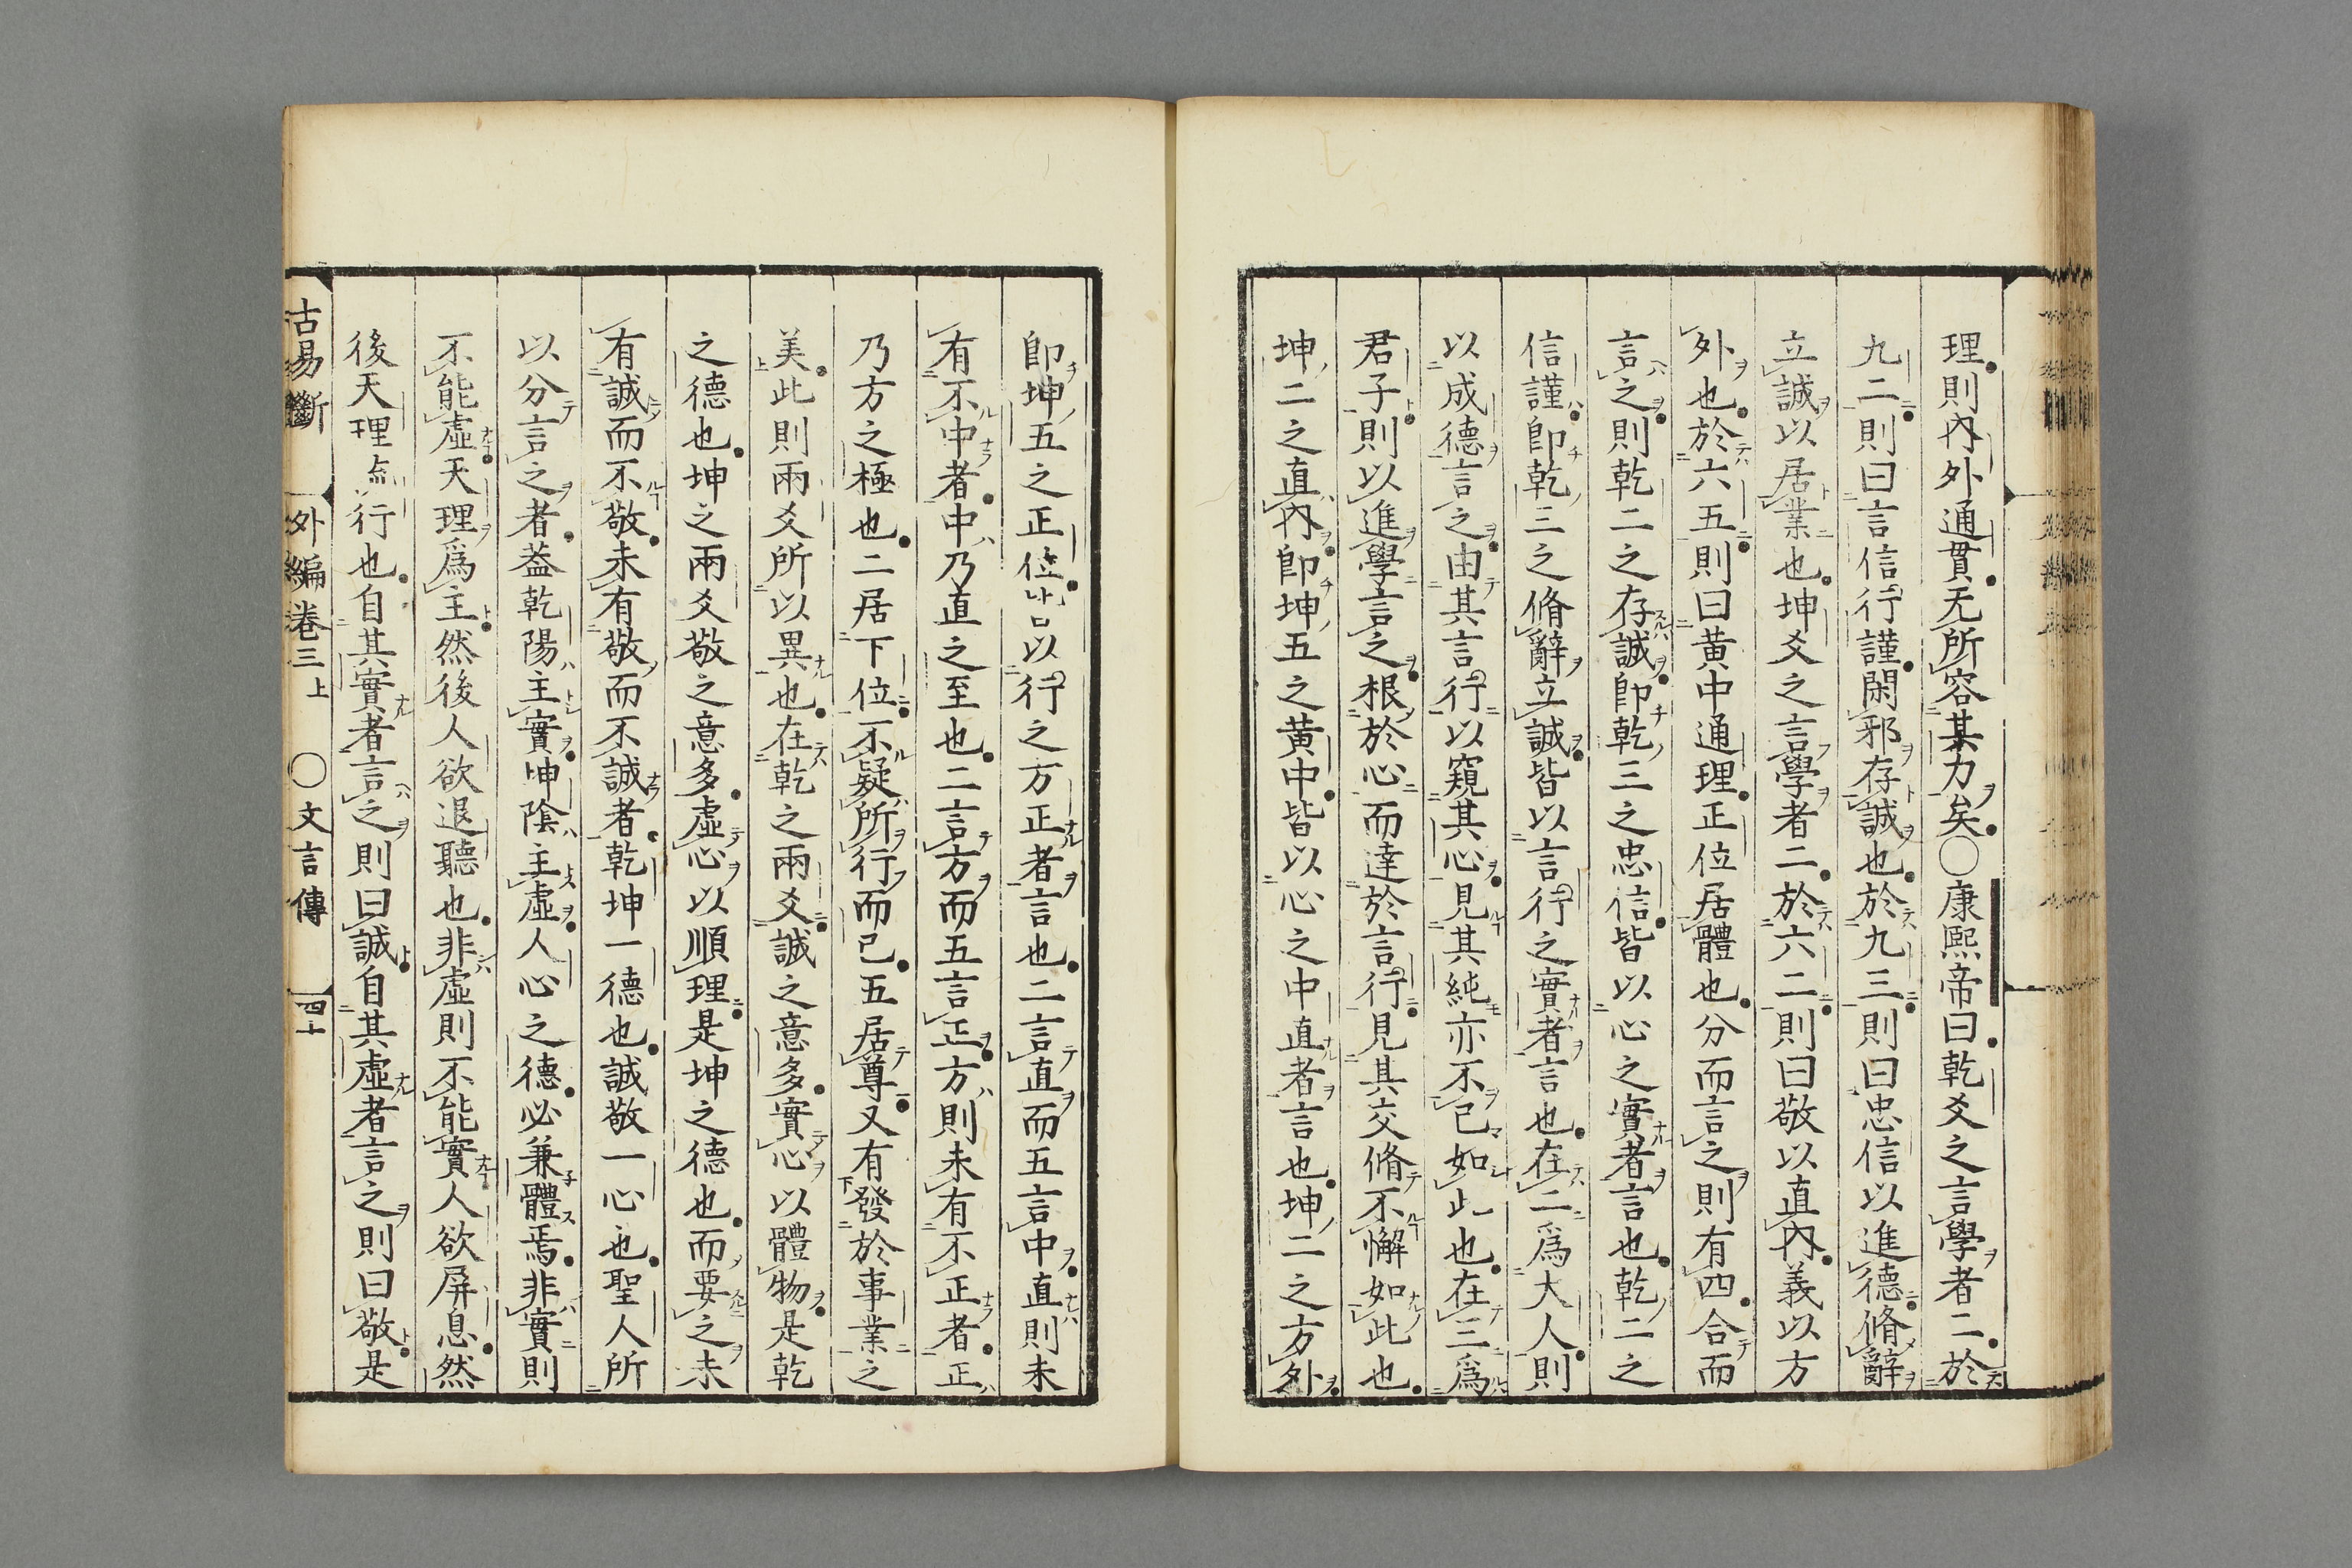 理則內外通貫无所容其力矣○康熙帝曰乾爻之言學者二於
九二則曰言信行謹閑邪存誠也於九三則曰忠信以進德脩辭
立誠以居業也坤爻之言學者二於六二則曰敬以直內義以方
外也於六五則曰黃中通理正位居體也分而言之則有四合而
言之則乾二之存誠卽乾三之忠信皆以心之實者言也乾二之
信謹卽乾三之脩辭立誠皆以言行之實者言也在二爲大人則
以成德言之由其言行以窺其心見其純亦不已如此也在三爲
君子則以進學言之根於心而達於言行見其交脩不懈如此也
坤二之直內卽坤五之黃中皆以心之中直者言也坤二之方外
卽坤五之正位以行之方正者言也二言直而五言中直則未
有不中者中乃直之至也二言方而五言正方則未有不正者正
乃方之極也二居下位不疑所行而已五居尊又有發於事業之
美此則兩爻所以異也在乾之兩爻誠之意多實心以體物是乾
之德也坤之兩爻敬之意多虛心以順理是坤之德也而要之未
有誠而不敬未有敬而不誠者乾坤一德也誠敬一心也聖人所
以分言之者葢乾陽主實坤陰主虛人心之德必兼體焉非實則
不能虛天理爲主然後人欲退聽也非虛則不能實人欲屏息然
後天理行也自其實者言之則曰誠自其虛者言之則曰敬是
古易斷 外編卷三上 ○文言傳 四十